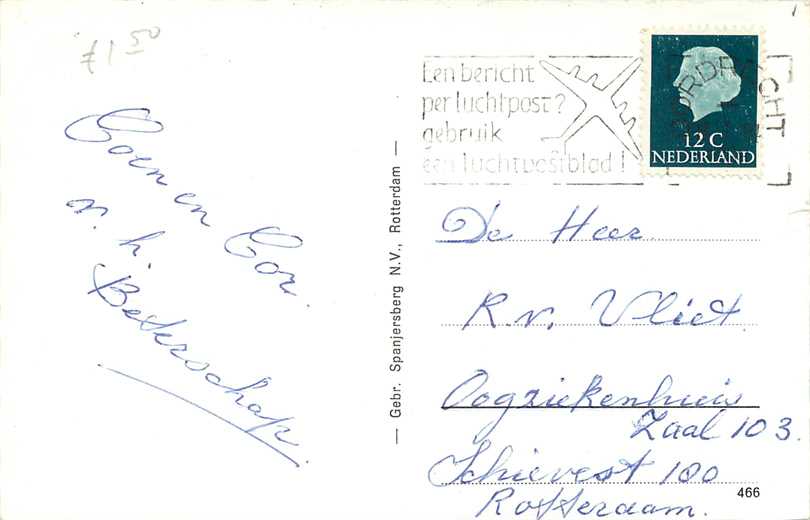 £1 50
Coen en Cor.
v. h.
Beterschap.
— Gebr. Spanjersberg N.V., Rotterdam —
Een bericht
per luchtpost?
gebruik
een luchtpostblad!
DORDRECHT
12 C
NEDERLAND
De Heer
R. v. Vliet.
Oogziekenhuis
Zaal 103.
Schievest 100
Rotterdam.
466